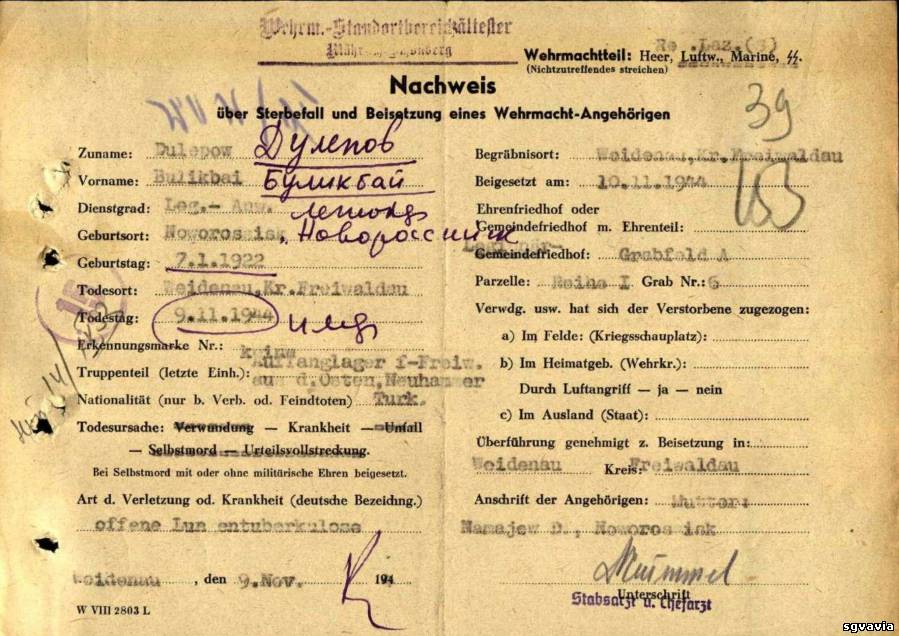 Wehrm.-Standortbereichältester
Wehrmachtteil: Heer, Luftw., Marine, SS.
(Nichtzutreffendes streichen)
Nachweis
über Sterbefall und Beisetzung eines Wehrmacht-Angehörigen
39
Zuname: Dulepow Дулепов
Vorname: Bulikbai Буликбай
Dienstgrad: Leg.- Anw.
Geburtsort: Noworossisk, Новороссийск
Geburtstag: 7.1.1922
Todesort: Weidenau,Kr.Freiwaldau
Todestag: 9.11.1944
Erkennungsmarke Nr.: keine
Truppenteil (letzte Einh.): Auffanglager f-Freiw.
aus d.Osten,Neuhammer
Nationalität (nur b. Verb. od. Feindtoten) Turk.
Todesursache: Verwundung — Krankheit — Unfall
— Selbstmord — Urteilsvollstreckung.
Bei Selbstmord mit oder ohne militärische Ehren beigesetzt.
Art d. Verletzung od. Krankheit (deutsche Bezeichng.)
offene Lun entuberkulose
Weidenau, den 9.Nov. 194
W VIII 2803 L
Begräbnisort: Weidenau,Kr.Freiwaldau
Beigesetzt am: 10.11.1944
Ehrenfriedhof oder
Gemeindefriedhof m. Ehrenteil:
Gemeindefriedhof: Grabfeld A
Parzelle: Reihe I Grab Nr.: 6
Verwdg. usw. hat sich der Verstorbene zugezogen:
a) Im Felde: (Kriegsschauplatz):
b) Im Heimatgeb. (Wehrkr.):
Durch Luftangriff — ja — nein
c) Im Ausland (Staat):
Überführung genehmigt z. Beisetzung in:
Weidenau Kreis: Freiwaldau
Anschrift der Angehörigen: Mutter:
Namajew D., Noworossisk
Unterschrift
Stabsarzt u. Chefarzt
sgvavia